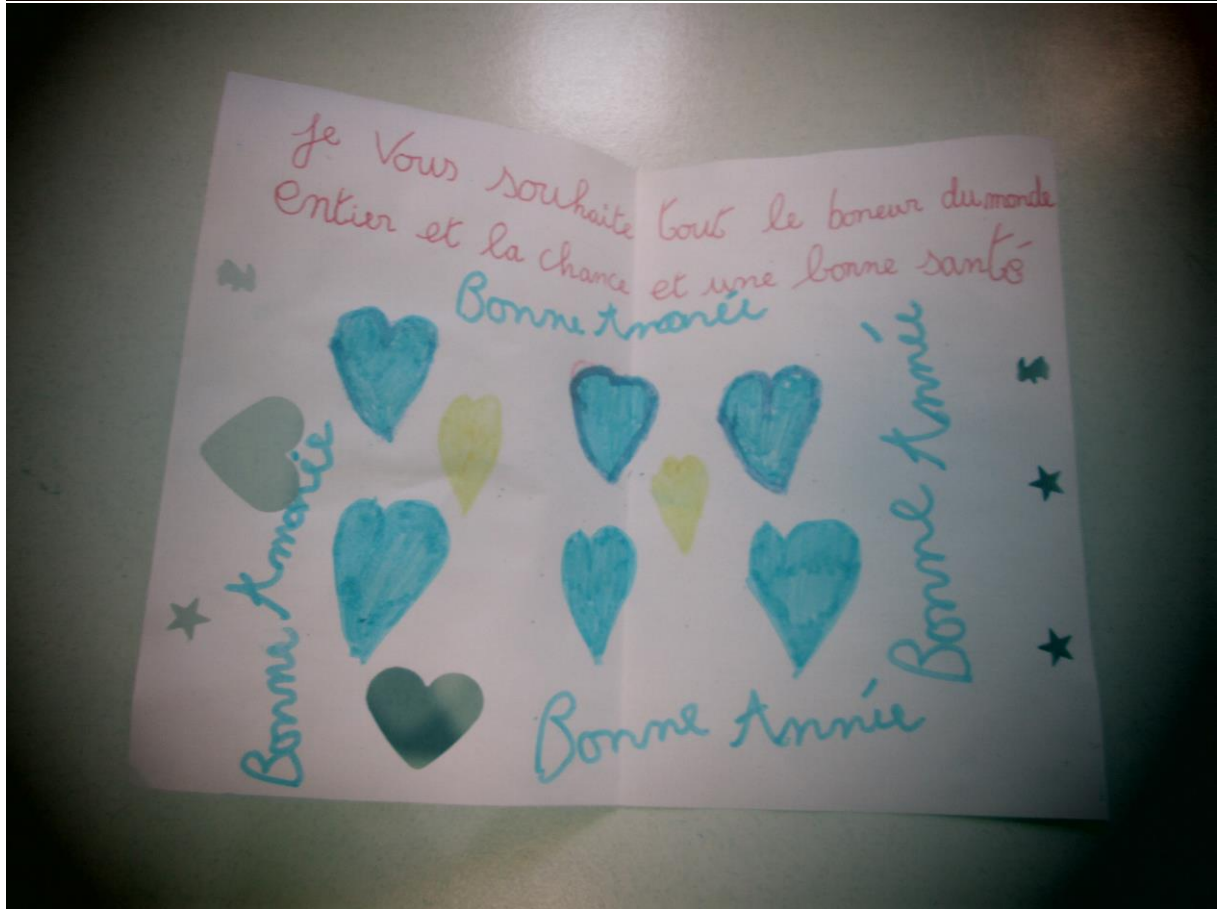 Je Vous souhaite tout le boneur du monde
entier et la chance et une bonne santé
Bonne Année
Bonne Année
Bonne Année
Bonne Année